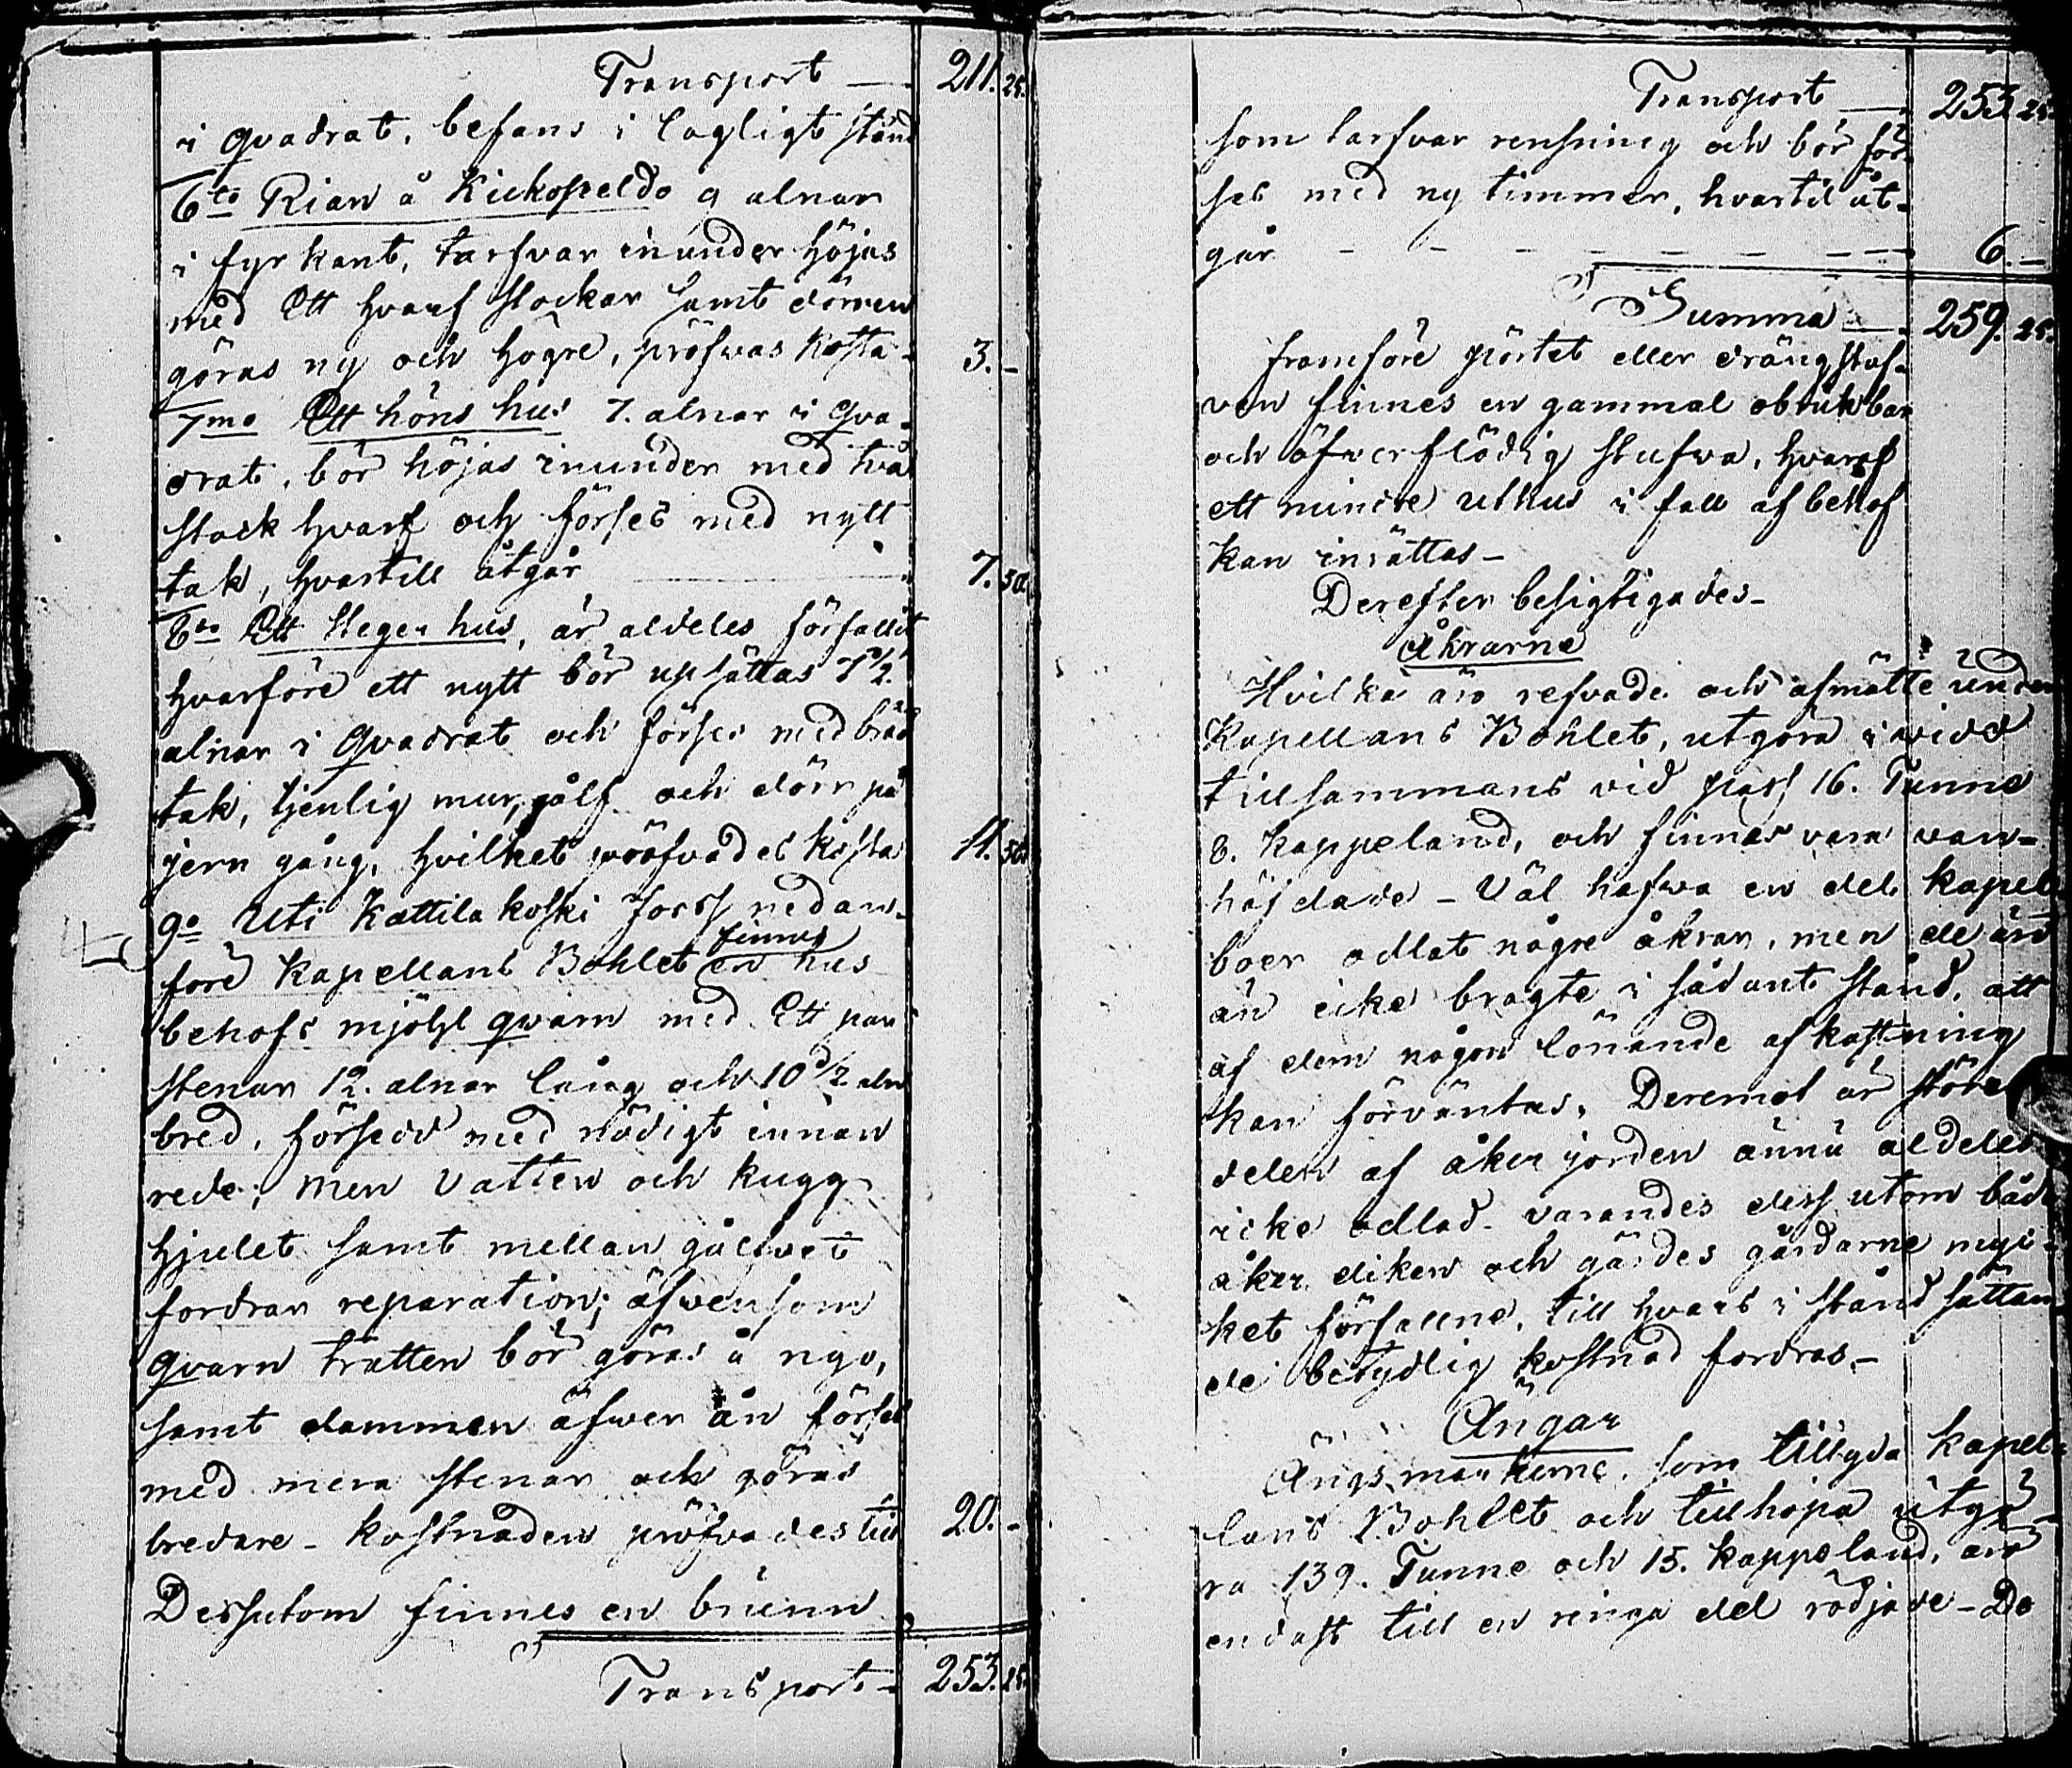 Transport — 211. 25.
i qvadrat, befans i lagligt stånd
6to Rian å Kickopeldo 9 alnar
i fyrkant, tarfvar inunder höjas
med Ett hvarf stockar samt dörren
göras ny och högre, pröfvas kosta - 3. -
7mo Ett höns hus 7. alnar i qva-
drat, bör höjas inunder med två
stock hvarf och förses med nytt
tak, hvartill åtgår 7. 50.
8vo Ett Steger hus, är aldeles förfallit
hvarföre ett nytt bör upsättas 7 1/2
alnar i Qvadrat och förses med bräd
tak, tjenlig mur, gålf och dörr på
jern gång, hvilket pröfvades kosta 11. 50.
9o Uti Kattilakoski forss nedan-
före Kapellans Bohlet finnes en hus
behofs mjöhl qwarn med Ett par
stenar 12. alnar lång och 10 1/2 aln
bred, försedd med nödigt innan
rede; men Vatten och kugg-
hjulet samt mellan gålfvet
fordrar reparation; äfwensom
qvarn tratten bör göras å nyo,
samt dammen äfwen än förses
med mera stenar och göras
bredare - kostnaden pröfvades till 20. -
Dessutom finnes en brunn
Transport - 253. 25.
Transport — 253 25.
som tarfvar rensning och bör för-
ses med ny timmer, hvartil åt-
går - - - - - - - 6. -
Summa — 259. 25.
framföre pörtet eller drängstuf-
ven finnes en gammal obrukbar
och öfwerflödig stufwa, hvaraf
ett mindre uthus i fall af behof
kan inrättas -
Derefter besigtigades -
Åkrarne
Hvilka äro refvade och afmätte under
Kapellans Bohlet, utgöra i vidd
tillsammans vid pass 16. Tunne
8. kappeland, och finnas vara wan-
häjdade - Väl hafwa en del kapel
boer odlat någre åkrar, men de äro
än icke bragte i sådant stånd, att
af dem någon lönande afkastning
kan förväntas. Deremot är större
delen af åker jorden ännu aldeles
icke odlad - varandes dess utom både
åker diken och gärdes gårdarne myc-
ket förfallne, till hvars i stånd sättan
de betydlig kostnad fordras. -
Ängar
Ängsmarkerne, som tillyda kapel-
lans Bohlet och tillhopa utgö-
ra 139. Tunne och 15. kappeland, äro
endast till en ringa del rödjade - De